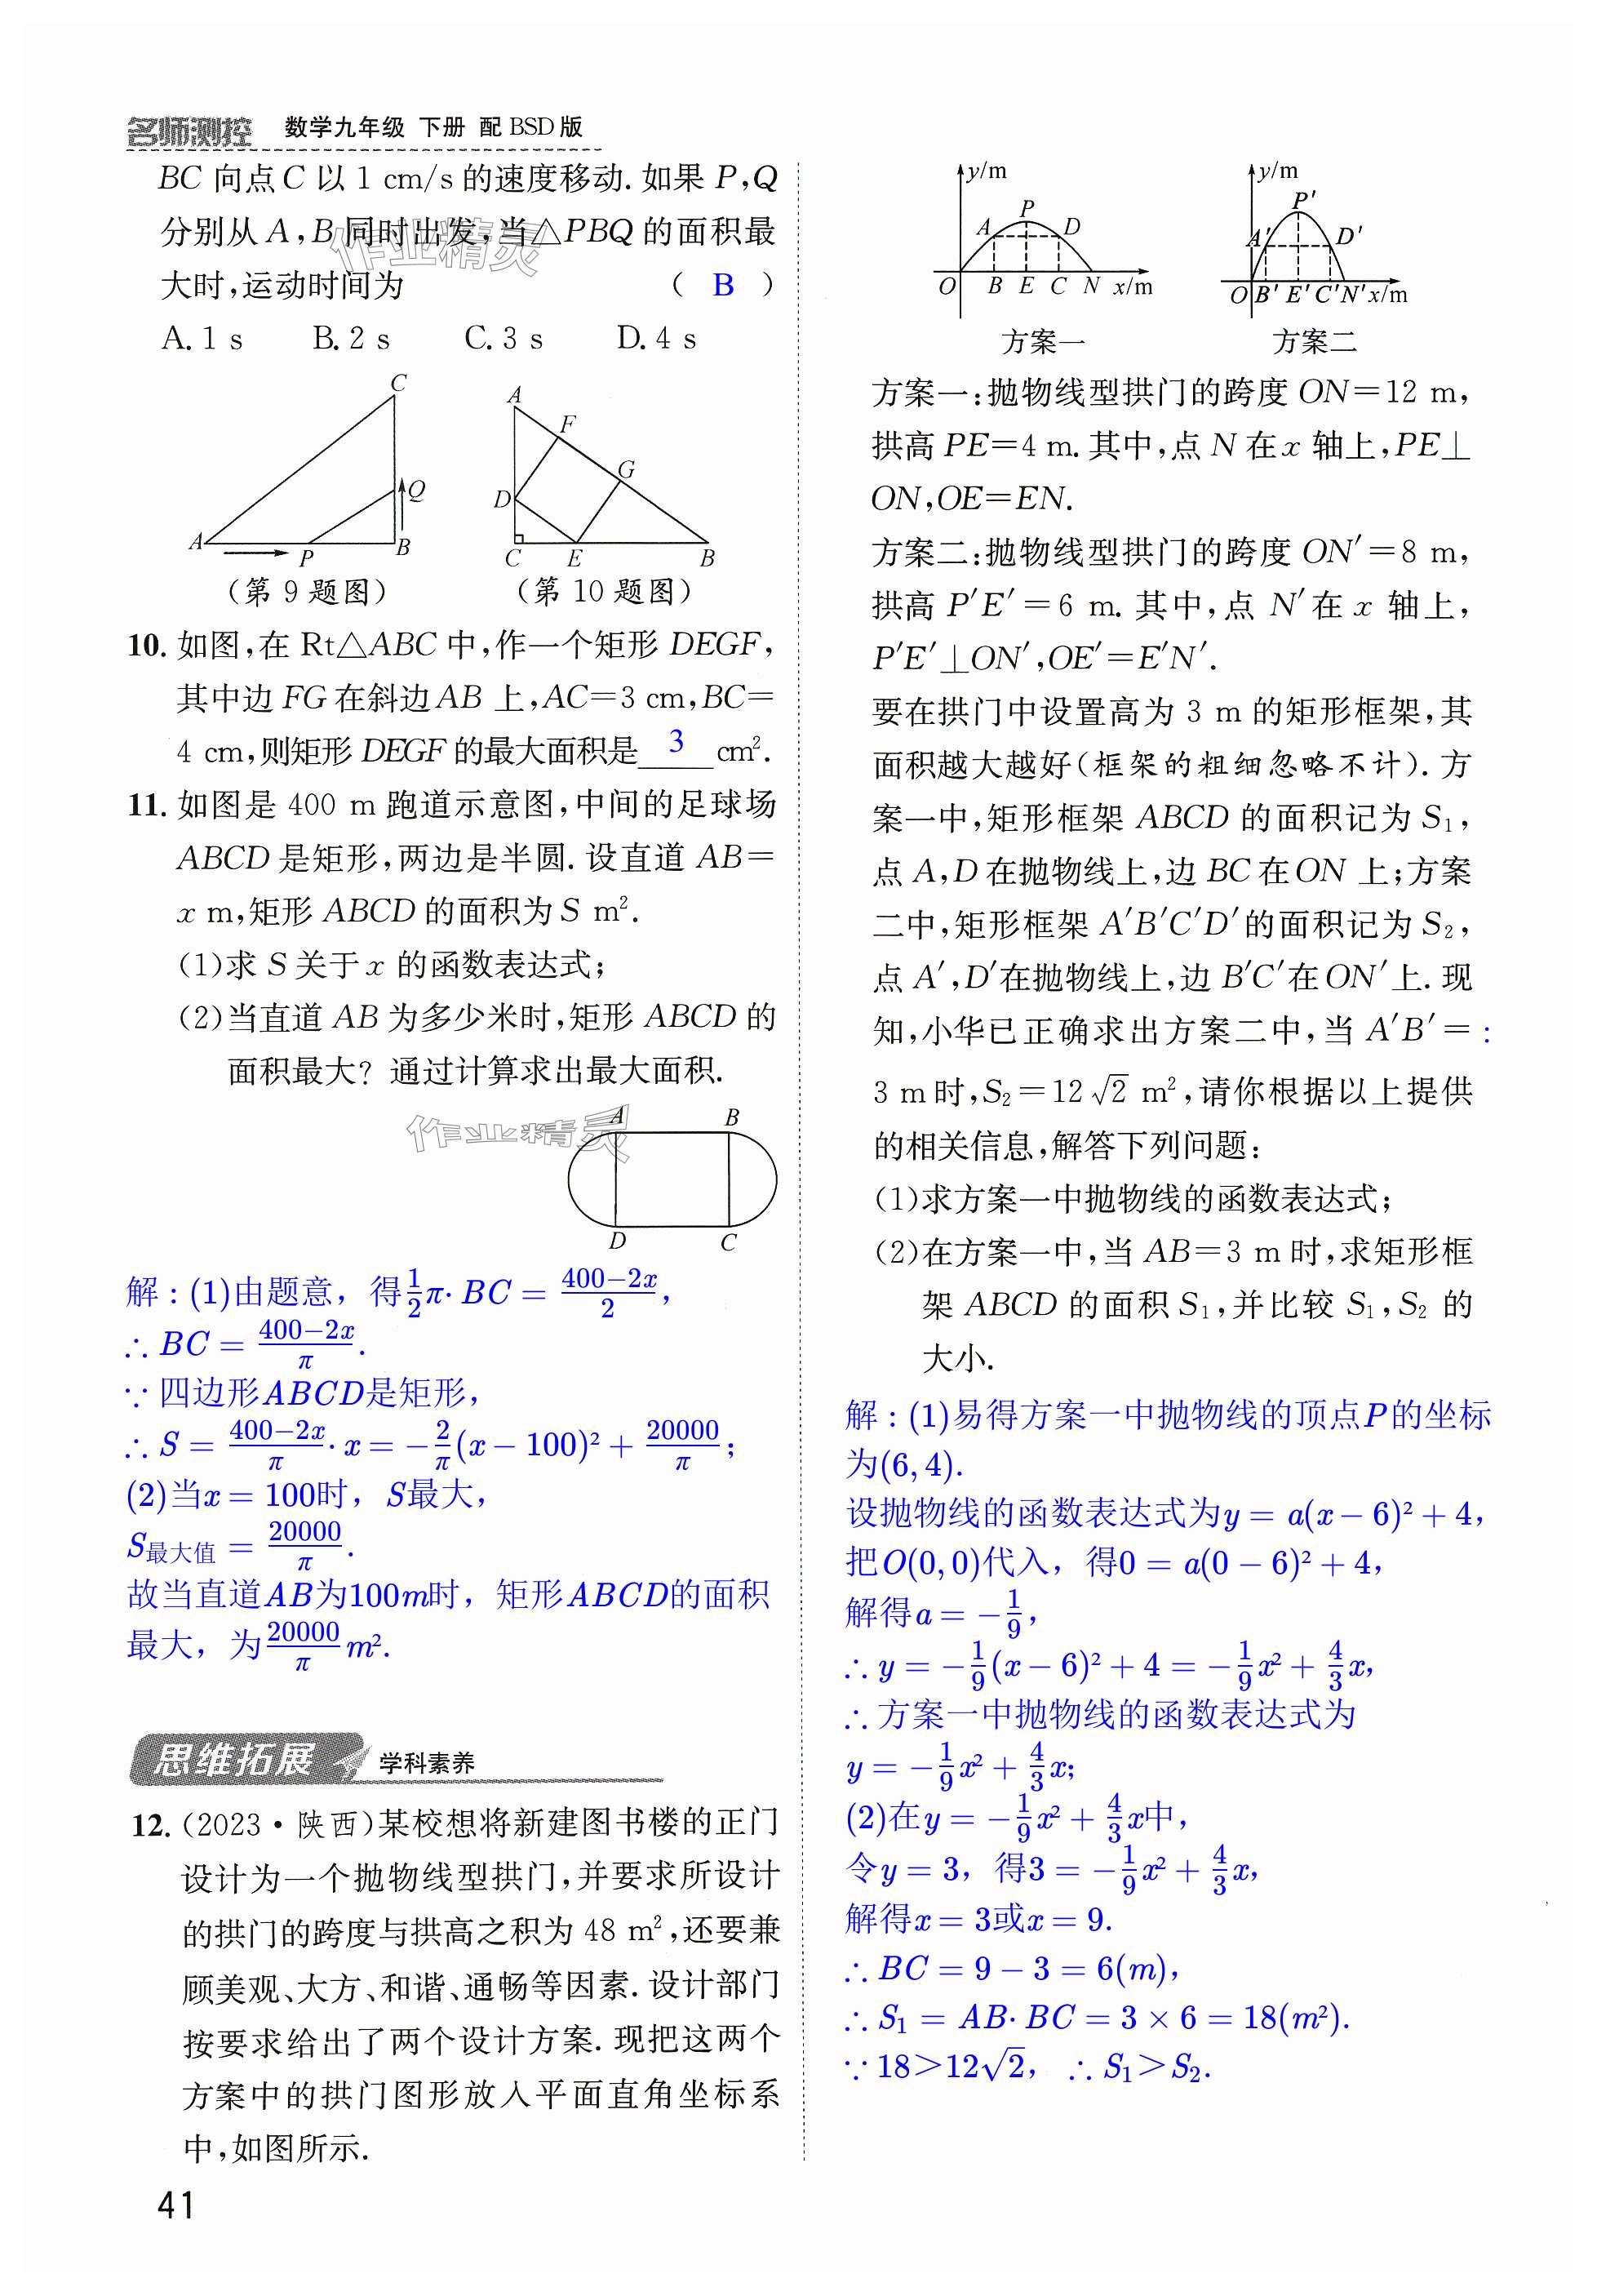 名师测控 数学九年级 下册 配 BSD 版
BC 向点 C 以 1 cm/s 的速度移动. 如果 P,Q
分别从 A,B 同时出发,当△PBQ 的面积最
大时,运动时间为 ( B )
A. 1 s B. 2 s C. 3 s D. 4 s
作业精灵
C
Q
A
P
B
A
F
G
D
C
E
B
(第 9 题图) (第 10 题图)
10. 如图,在 Rt△ABC 中,作一个矩形 DEGF,
其中边 FG 在斜边 AB 上,AC=3 cm,BC=
4 cm,则矩形 DEGF 的最大面积是 3 cm².
11. 如图是 400 m 跑道示意图,中间的足球场
ABCD 是矩形,两边是半圆. 设直道 AB=
x m,矩形 ABCD 的面积为 S m².
(1)求 S 关于 x 的函数表达式;
(2)当直道 AB 为多少米时,矩形 ABCD 的
面积最大? 通过计算求出最大面积.
作业精灵
A B
D C
解：(1)由题意，得1/2 π·BC = (400−2x)/2，
∴ BC = (400−2x)/π.
∵ 四边形ABCD是矩形，
∴ S = (400−2x)/π · x = −2/π (x − 100)² + 20000/π；
(2)当x = 100时，S最大，
S最大值 = 20000/π.
故当直道AB为100m时，矩形ABCD的面积
最大，为20000/π m².
思维拓展 学科素养
12. (2023·陕西)某校想将新建图书楼的正门
设计为一个抛物线型拱门,并要求所设计
的拱门的跨度与拱高之积为 48 m²,还要兼
顾美观、大方、和谐、通畅等因素. 设计部门
按要求给出了两个设计方案. 现把这两个
方案中的拱门图形放入平面直角坐标系
中,如图所示.
41
y/m
P
A D
O B E C N x/m
方案一
y/m
P′
A′ D′
O B′ E′ C′ N′ x/m
方案二
方案一:抛物线型拱门的跨度 ON=12 m,
拱高 PE=4 m. 其中,点 N 在 x 轴上,PE⊥
ON,OE=EN.
方案二:抛物线型拱门的跨度 ON′=8 m,
拱高 P′E′=6 m. 其中,点 N′在 x 轴上,
P′E′⊥ON′,OE′=E′N′.
要在拱门中设置高为 3 m 的矩形框架,其
面积越大越好(框架的粗细忽略不计). 方
案一中,矩形框架 ABCD 的面积记为 S₁,
点 A,D 在抛物线上,边 BC 在 ON 上;方案
二中,矩形框架 A′B′C′D′的面积记为 S₂,
点 A′,D′在抛物线上,边 B′C′在 ON′上. 现
知,小华已正确求出方案二中,当 A′B′= :
3 m 时,S₂=12√2 m²,请你根据以上提供
的相关信息,解答下列问题:
(1)求方案一中抛物线的函数表达式;
(2)在方案一中,当 AB=3 m 时,求矩形框
架 ABCD 的面积 S₁,并比较 S₁,S₂ 的
大小.
解：(1)易得方案一中抛物线的顶点P的坐标
为(6, 4).
设抛物线的函数表达式为y = a(x − 6)² + 4，
把O(0, 0)代入，得0 = a(0 − 6)² + 4，
解得a = −1/9，
∴ y = −1/9 (x − 6)² + 4 = −1/9 x² + 4/3 x，
∴ 方案一中抛物线的函数表达式为
y = −1/9 x² + 4/3 x；
(2)在y = −1/9 x² + 4/3 x中，
令y = 3，得3 = −1/9 x² + 4/3 x，
解得x = 3或x = 9.
∴ BC = 9 − 3 = 6(m)，
∴ S₁ = AB·BC = 3 × 6 = 18(m²).
∵ 18>12√2，∴ S₁>S₂.